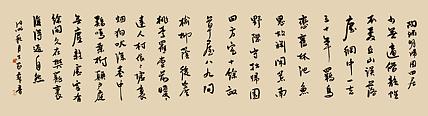 陶渊明歸园田居
少無適俗韻性
本愛丘山误落
塵網中一去
三十年羁鳥
戀舊林池魚
思故渊開荒南
野際守拙歸園
田方宅十餘畝
草屋八九間
榆柳蔭後簷
桃李羅堂前曖曖
遠人村依依墟里
煙狗吠深巷中
雞鳴桑樹顛戶庭
無塵雜虛室有
餘閒久在樊籠裏
復得返自然